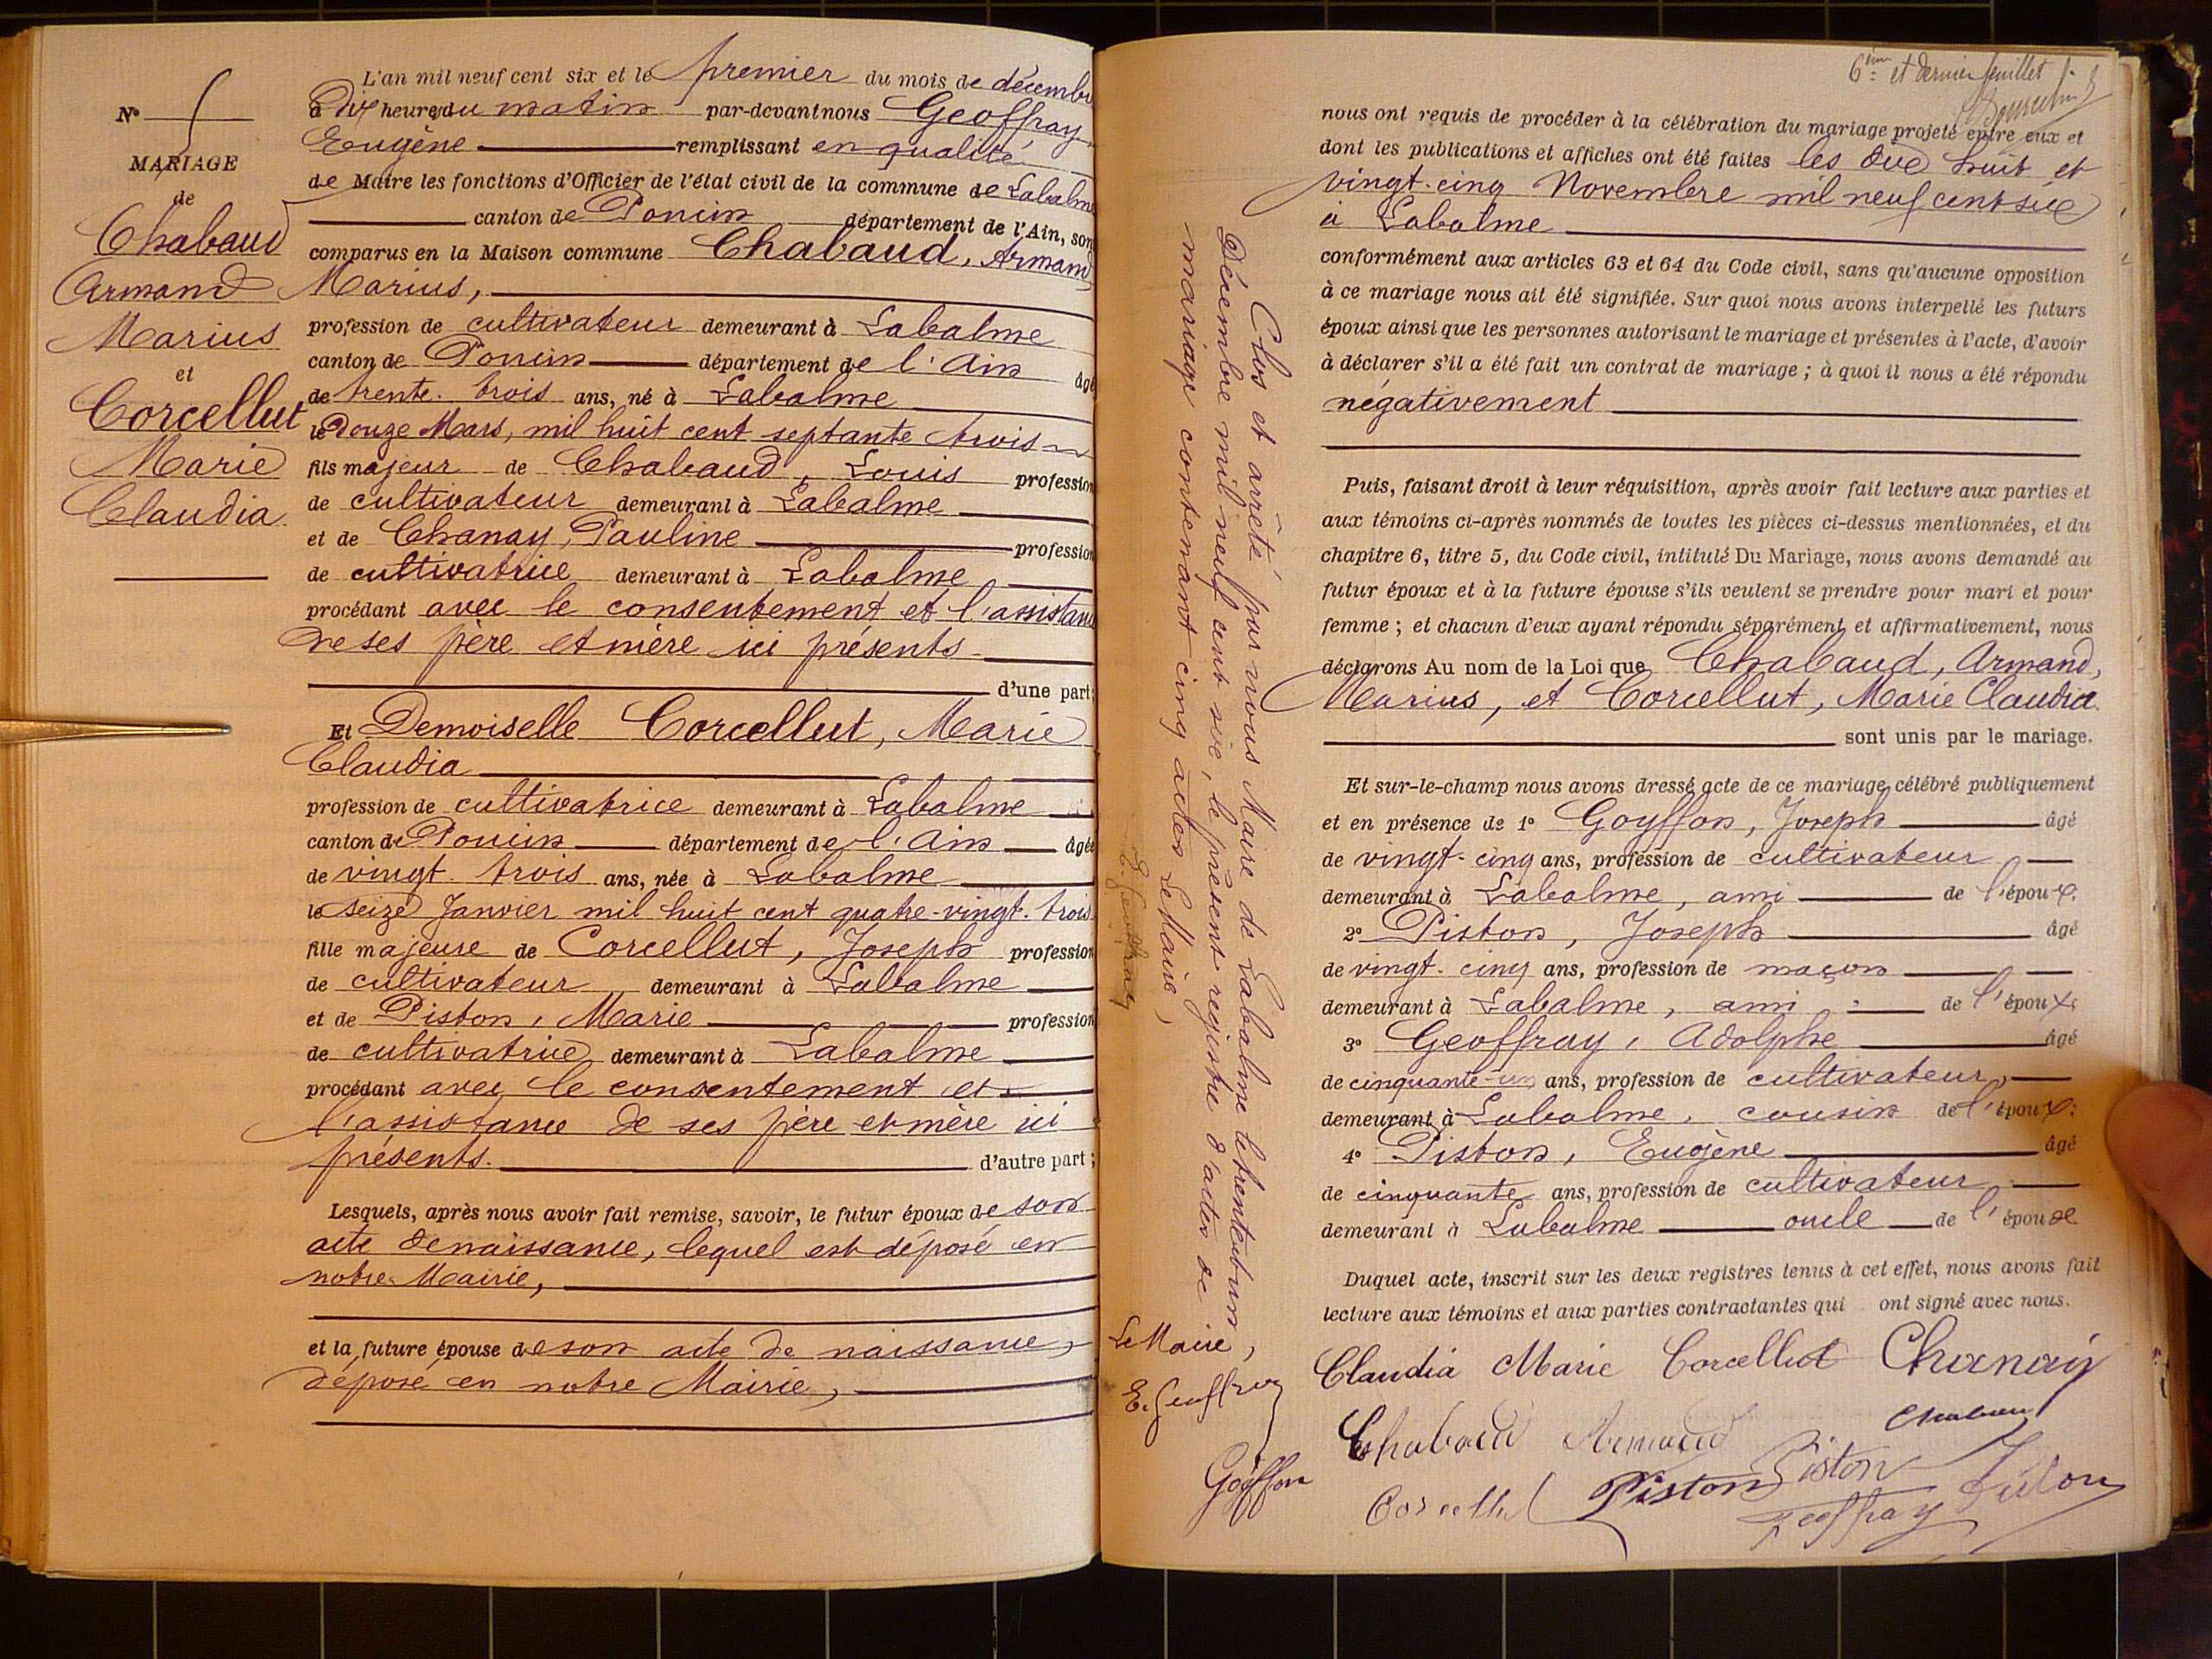 L'an mil neuf cent six et le premier du mois de décembre
à Dix heures du matin par-devant nous Geoffray
Eugène remplissant en qualité
de Maire les fonctions d'Officier de l'état civil de la commune de Labalme
canton de Poncin département de l'Ain, sont
comparus en la Maison commune Chabaud, Armand
Marius,
profession de cultivateur demeurant à Labalme
canton de Poncin département de l'Ain âgé
de trente-trois ans, né à Labalme
le Douze Mars, mil huit cent septante trois
fils majeur de Chabaud, Louis profession
de cultivateur demeurant à Labalme
et de Chanay, Pauline profession
de cultivatrice demeurant à Labalme
procédant avec le consentement et l'assistance
de ses père et mère ici présents
d'une part;
Et Demoiselle Corcellut, Marie
Claudia
profession de cultivatrice demeurant à Labalme
canton de Poncin département de l'Ain âgée
de vingt-trois ans, née à Labalme
le seize Janvier mil huit cent quatre-vingt-trois
fille majeure de Corcellut, Joseph profession
de cultivateur demeurant à Labalme
et de Piston, Marie profession
de cultivatrice demeurant à Labalme
procédant avec le consentement et
l'assistance de ses père et mère ici
présents. d'autre part;
Lesquels, après nous avoir fait remise, savoir, le futur époux de son
acte de naissance, lequel est déposé en
notre Mairie,
et la future épouse de son acte de naissance,
déposé en notre Mairie,
N° 5
MARIAGE
de
Chabaud
Armand
Marius
et
Corcellut
Marie
Claudia
6ème et dernier feuillet
nous ont requis de procéder à la célébration du mariage projeté entre eux et
dont les publications et affiches ont été faites les dix huit et
vingt-cinq Novembre mil neuf cent six
à Labalme
conformément aux articles 63 et 64 du Code civil, sans qu'aucune opposition
à ce mariage nous ait été signifiée. Sur quoi nous avons interpellé les futurs
époux ainsi que les personnes autorisant le mariage et présentes à l'acte, d'avoir
à déclarer s'il a été fait un contrat de mariage; à quoi il nous a été répondu
négativement
Puis, faisant droit à leur réquisition, après avoir fait lecture aux parties et
aux témoins ci-après nommés de toutes les pièces ci-dessus mentionnées, et du
chapitre 6, titre 5, du Code civil, intitulé Du Mariage, nous avons demandé au
futur époux et à la future épouse s'ils veulent se prendre pour mari et pour
femme; et chacun d'eux ayant répondu séparément et affirmativement, nous
déclarons Au nom de la Loi que Chabaud, Armand,
Marius, et Corcellut, Marie Claudia
sont unis par le mariage.
Et sur-le-champ nous avons dressé acte de ce mariage célébré publiquement
et en présence de 1° Goyffon, Joseph âgé
de vingt-cinq ans, profession de cultivateur
demeurant à Labalme, ami de l'époux;
2° Piston, Joseph âgé
de vingt-cinq ans, profession de maçon
demeurant à Labalme, ami de l'époux;
3° Geoffray, Adolphe âgé
de cinquante-un ans, profession de cultivateur,
demeurant à Labalme, cousin de l'époux;
4° Piston, Eugène âgé
de cinquante ans, profession de cultivateur
demeurant à Labalme oncle de l'épouse
Duquel acte, inscrit sur les deux registres tenus à cet effet, nous avons fait
lecture aux témoins et aux parties contractantes qui ont signé avec nous.
Claudia Marie Corcellut Chanay
Chabaud Armand Chabaud
Goyffon Corcellut Piston Piston Piston
Geoffray
Clos et arrêté par nous Maire de Labalme le trente et un
Décembre mil neuf cent six, le présent registre d'actes de
mariage contenant cinq actes Le Maire,
E. Geoffray
Le Maire,
E. Geoffray